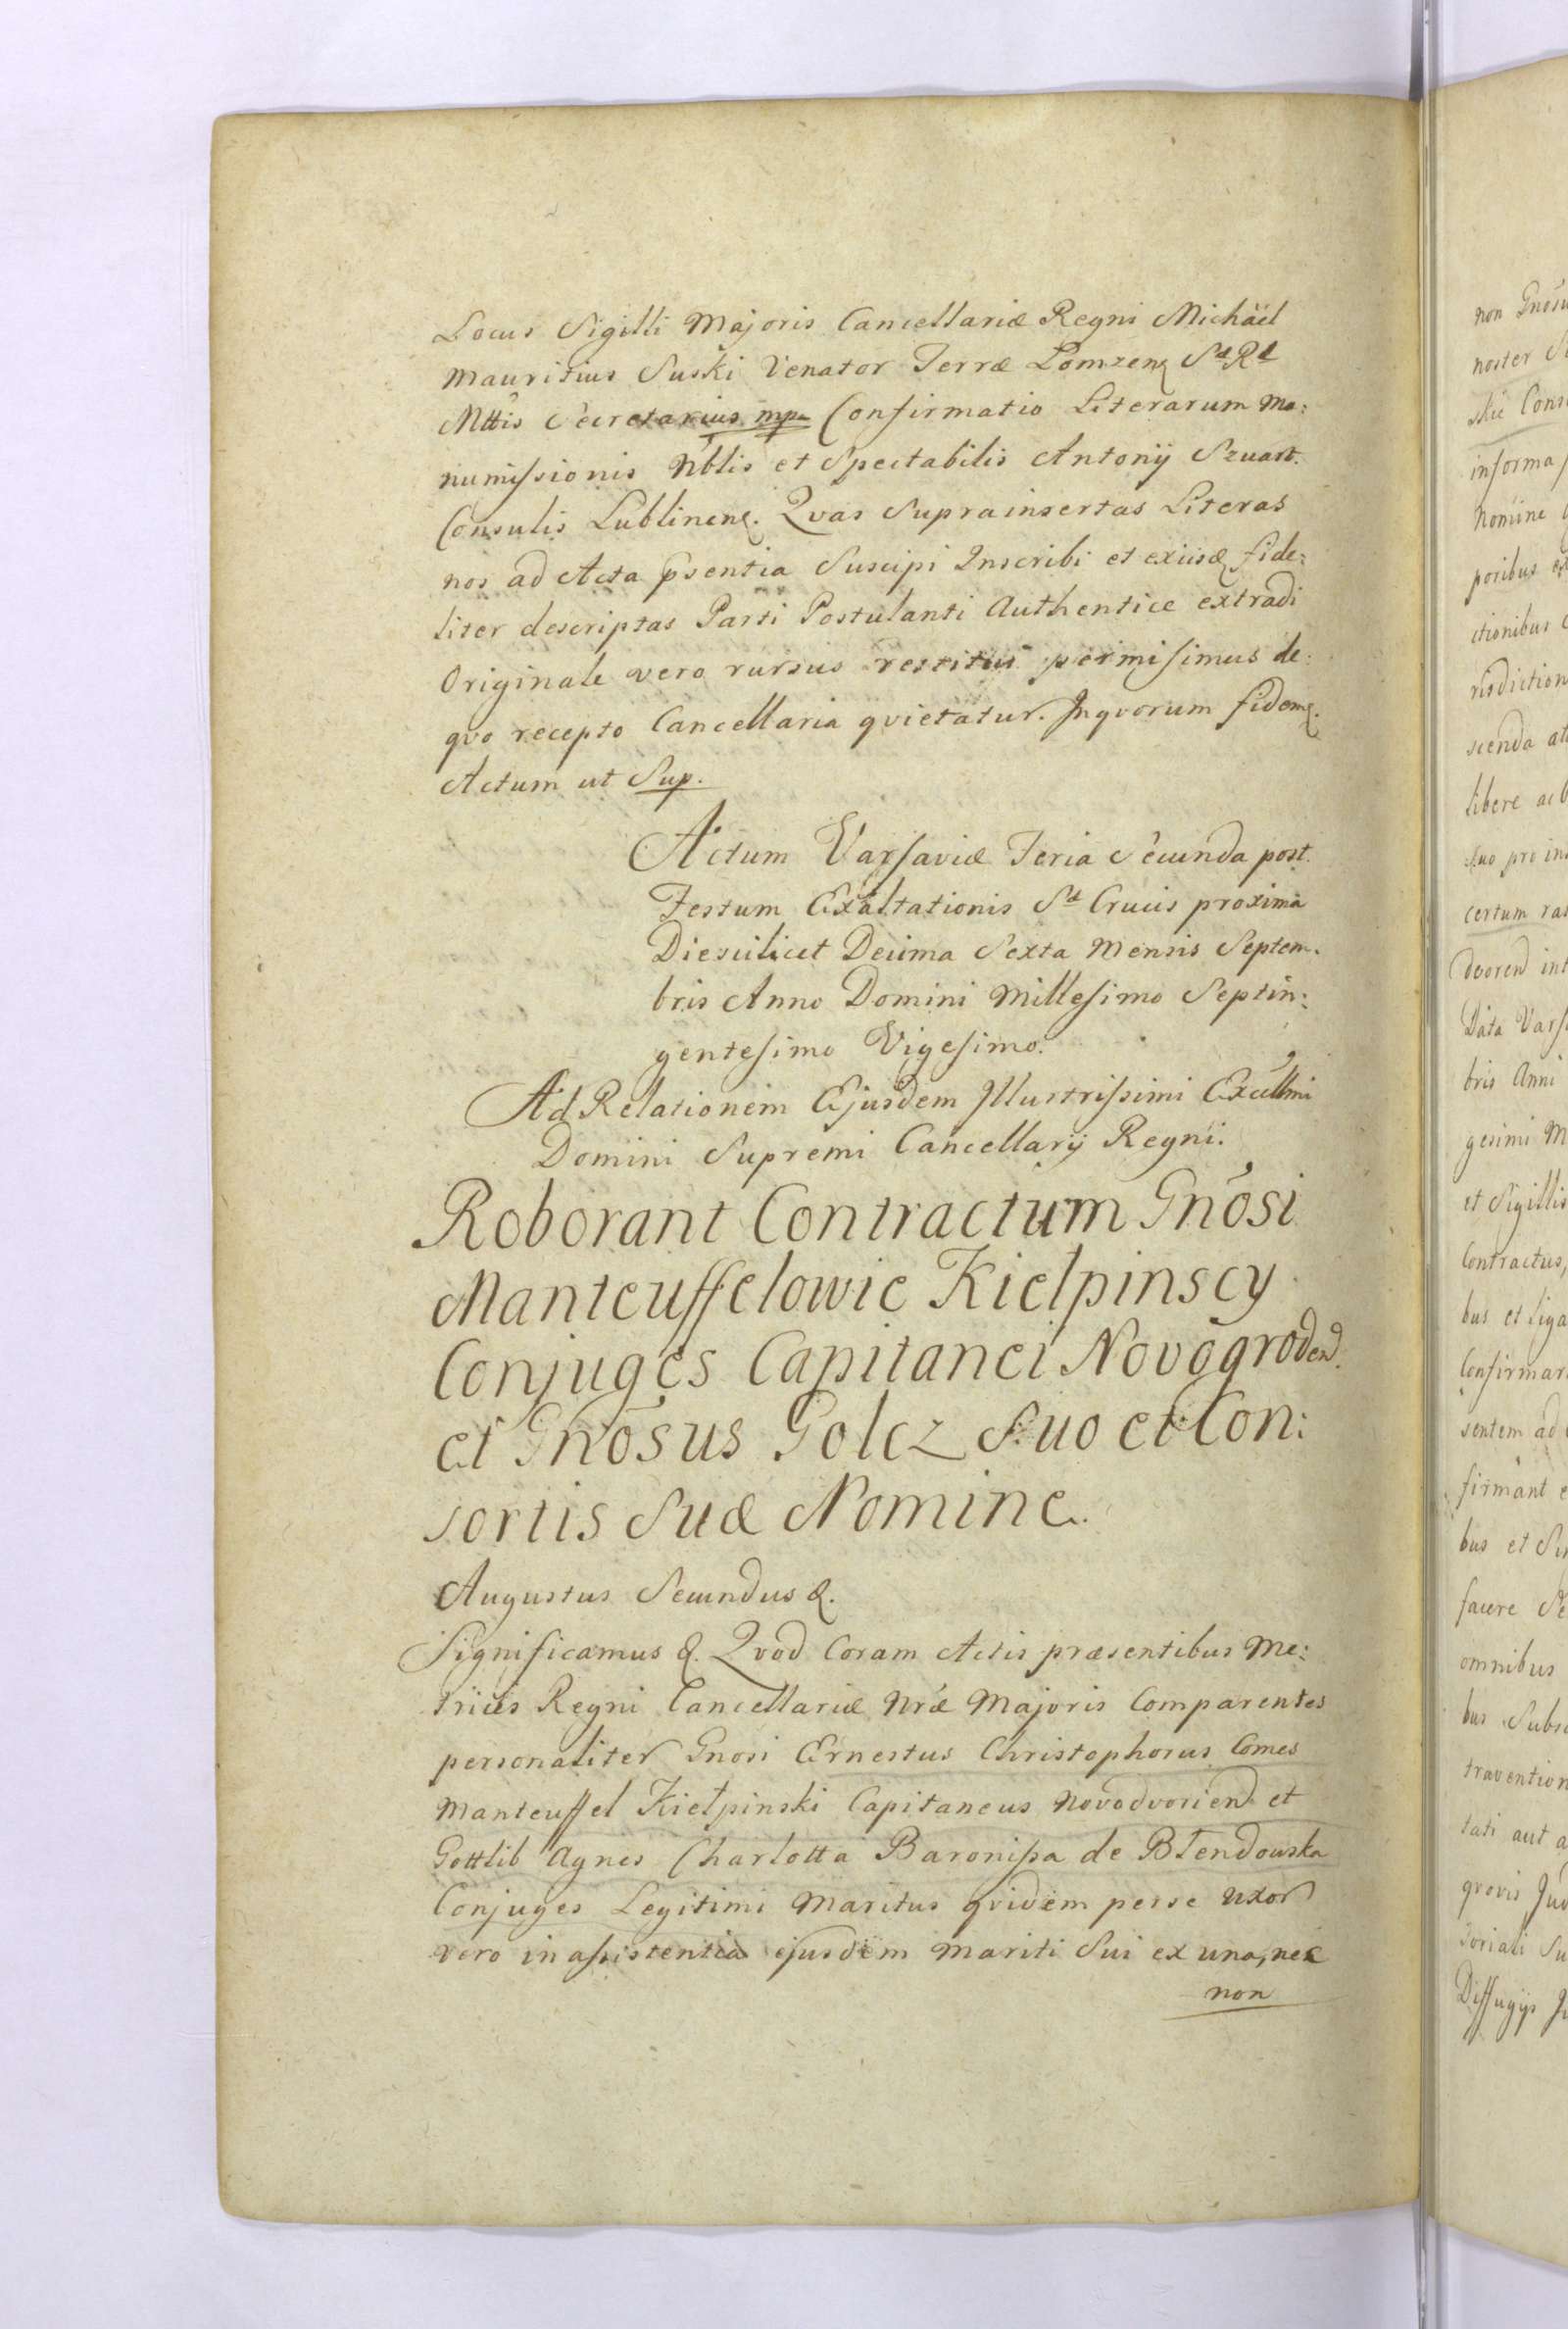 Locus Sigilli Majoris Cancellariæ Regni Michäel
Mauritius Suski Venator Terræ Lomzen S^æ R^æ
Mttis Secretarius mp Confirmatio Literarum Ma:
numissionis Nblis et Spectabilis Antonij Szuart.
Consulis Lublinen. Qvas Suprainsertas Literas
nos ad Acta pсentia Suscipi Inscribi et exiisq fide:
liter descriptas Parti Postulanti Authentice extradi
Originale vero rursus restitui permisimus de:
qvo recepto Cancellaria qvietatur. Inqvorum fidem.
Actum ut Sup.
Actum Varsaviæ Feria Secunda post.
Festum Exaltationis S^æ Crucis proxima
Die scilicet Decima Sexta Mensis Septem.
bris Anno Domini Millesimo Septin:
gentesimo Vigesimo.
Ad Relationem Ejusdem Illustrissimi Excellmi
Domini Supremi Cancellarij Regni.
Roborant Contractum Gnosi
Manteuffelowie Kiełpinscy
Conjuges Capitanei Novogroden.
et Gnosus Golcz Suo et Con:
sortis Suæ Nomine.
Augustus Secundus &.
Significamus &. Qvod Coram Actis præsentibus Me:
trices Regni Cancellariæ Nræ Majoris Comparentes
personaliter Gnosi Ernestus Christophorus Comes
Manteuffel Kiełpinski Capitaneus Novodvorien et
Gottlib Agnes Charlotta Baronissa de Błendowska
Conjuges Legitimi Maritus qvidem perse Uxor
vero in assistentia ejusdem Mariti Sui ex una, nec
non
non
noster
informa
Nomine
poribus
ctionibus
risdiction
scenda
libere
suo pro
certum
Data
bris Anni
gesimi
et Sigillis
Contractus,
bus et
Confirmar
sentem ad
firmant
bus et
facere
omnibus
bus
travention
tati aut
qvovis
Diffugijs